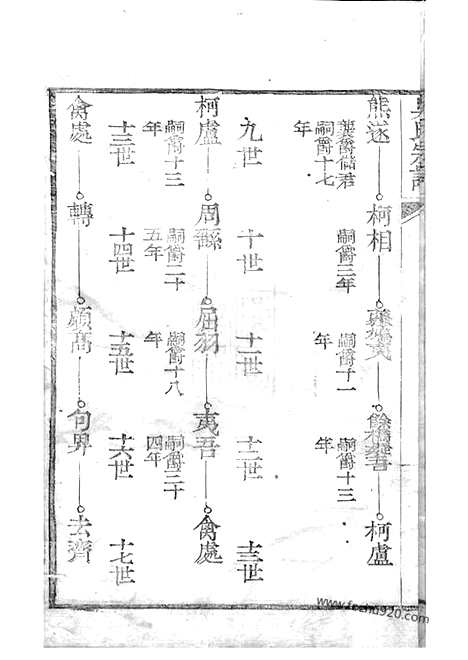 熊遂 柯相 彊鳩夷 餘橋疑吾 柯盧
襲爵儲君
嗣爵十七
年
嗣爵三年
嗣爵十一
年
嗣爵十三
年
九世 十世 十一世 十二世 十三世
柯盧 周繇 屈羽 夷吾 禽處
嗣爵十三
年
嗣爵二十
五年
嗣爵十八
年
嗣爵二十
四年
十三世 十四世 十五世 十六世 十七世
禽處 轉 頗高 句畀 去齊
www.fozhu920.com